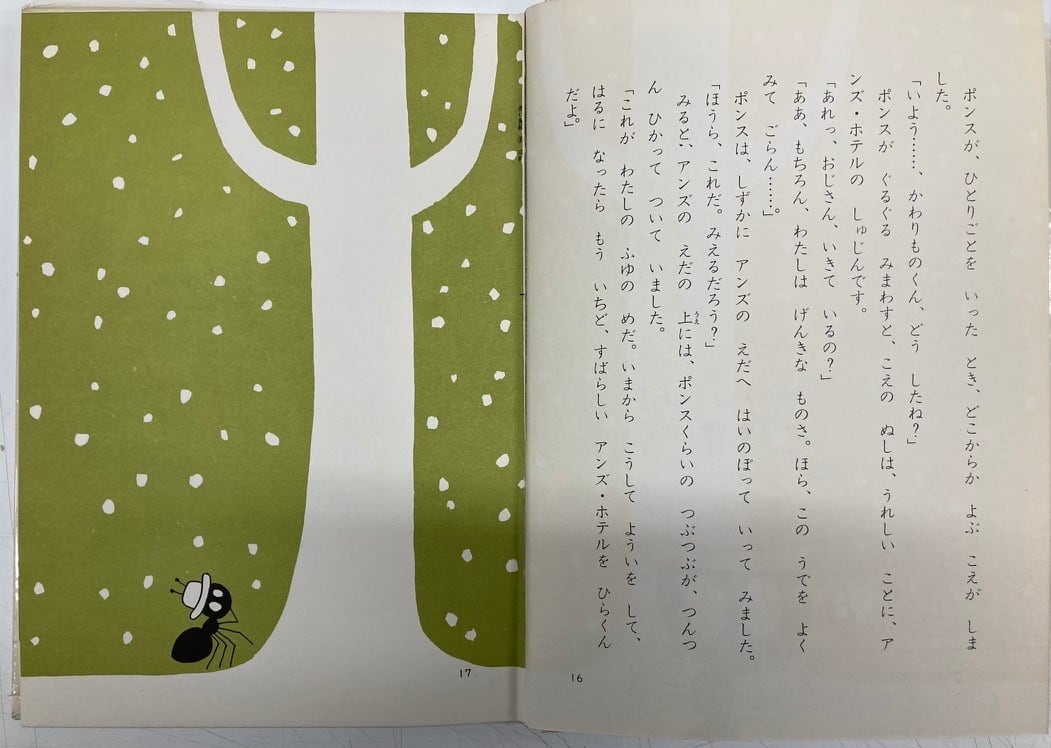 ポンスが、ひとりごとを いった とき、どこからか よぶ こえが しま
した。
「いよう……、かわりものくん、どう したね？」
ポンスが ぐるぐる みまわすと、こえの ぬしは、うれしい ことに、ア
ンズ・ホテルの しゅじんです。
「あれっ、おじさん、いきて いるの？」
「ああ、もちろん、わたしは げんきな ものさ。ほら、この うでを よく
みて ごらん……。」
ポンスは、しずかに アンズの えだへ はいのぼって いって みました。
「ほうら、これだ。みえるだろう？」
みると、アンズの えだの 上には、ポンスくらいの つぶつぶが、つんつ
うえ
ん ひかって ついて いました。
「これが わたしの ふゆの めだ。いまから こうして よういを して、
はるに なったら もう いちど、すばらしい アンズ・ホテルを ひらくん
だよ。」
16
17